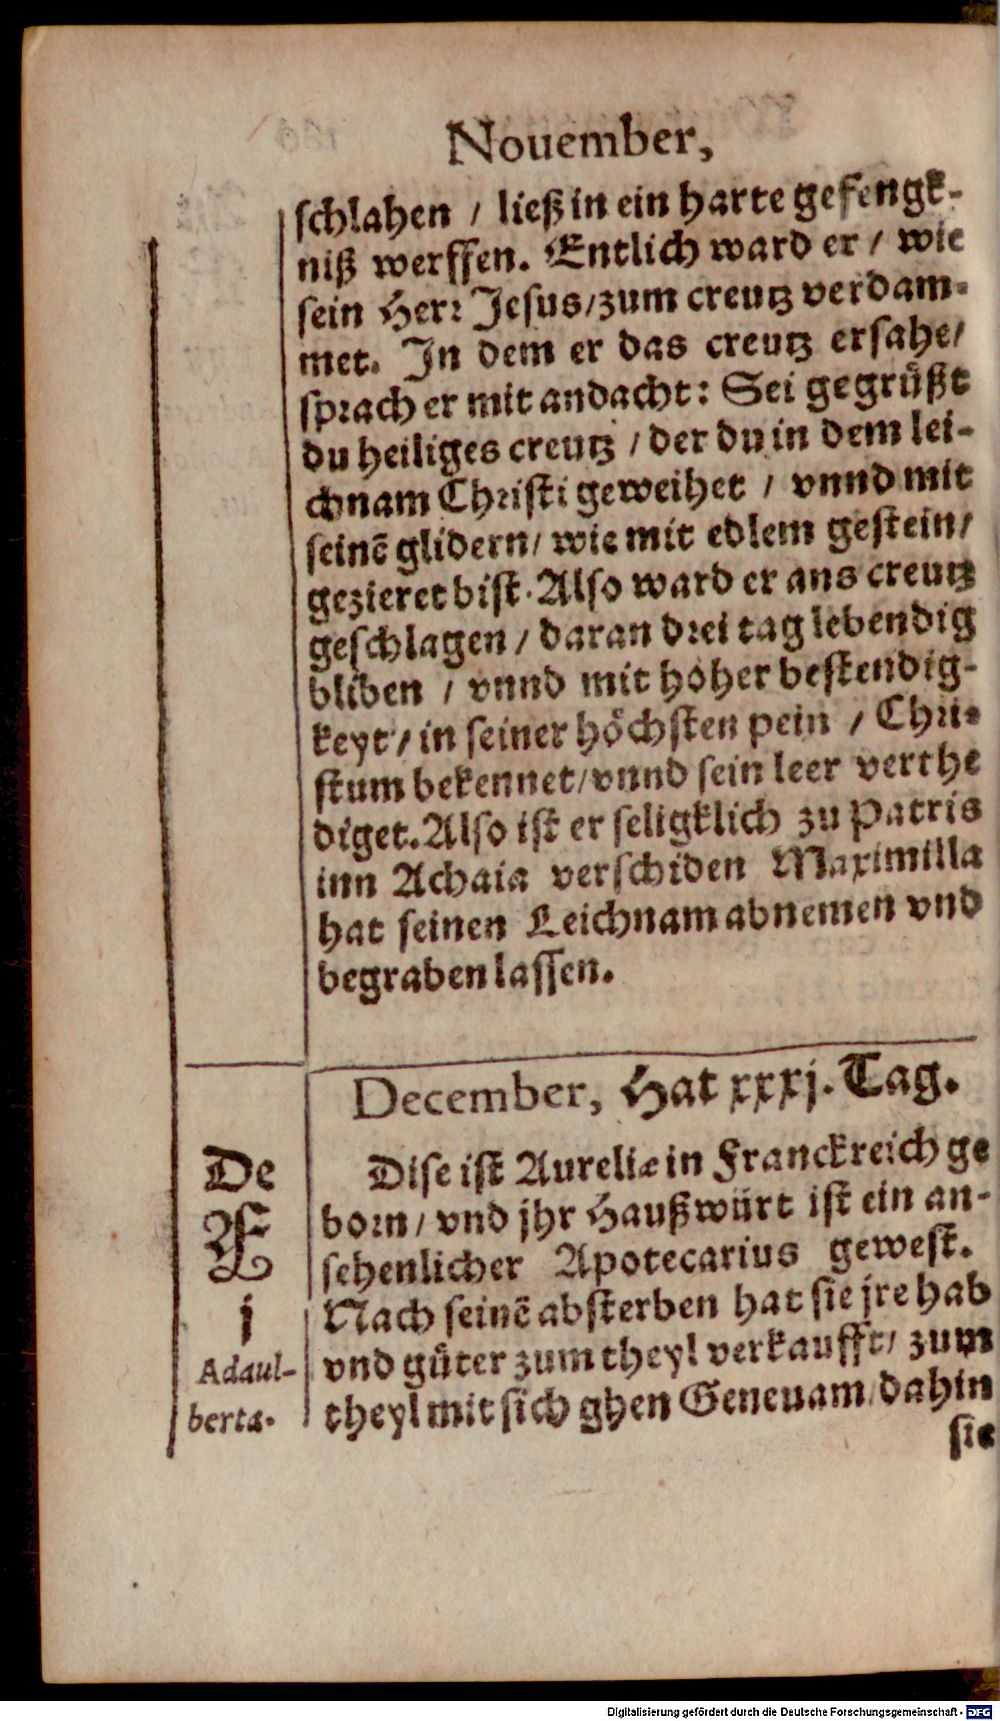 Nouember,
schlahen / ließ in ein harte gefengk-
niß werffen. Entlich ward er / wie
sein Herr Jesus / zum creutz verdam-
met. In dem er das creutz ersahe /
sprach er mit andacht: Sei gegrüßt
du heiliges creutz / der du in dem lei-
chnam Christi geweihet / vnnd mit
seinē glidern / wie mit edlem gestein /
gezieret bist. Also ward er ans creutz
geschlagen / daran drei tag lebendig
bliben / vnnd mit hoher bestendig-
keyt / in seiner höchsten pein / Chri-
stum bekennet / vnnd sein leer verthe
diget. Also ist er seligklich zu Patris
inn Achaia verschiden Maximilla
hat seinen Leichnam abnemen vnd
begraben lassen.
December, Hat xxxj. Tag.
De
F
j
Adaul-
berta.
Dise ist Aureliæ in Franckreich ge
born / vnd jhr Haußwürt ist ein an-
sehenlicher Apotecarius gewest.
Nach seinē absterben hat sie jre hab
vnd güter zum theyl verkaufft / zum
theyl mit sich ghen Geneuam / dahin
sie
Digitalisierung gefördert durch die Deutsche Forschungsgemeinschaft - DFG